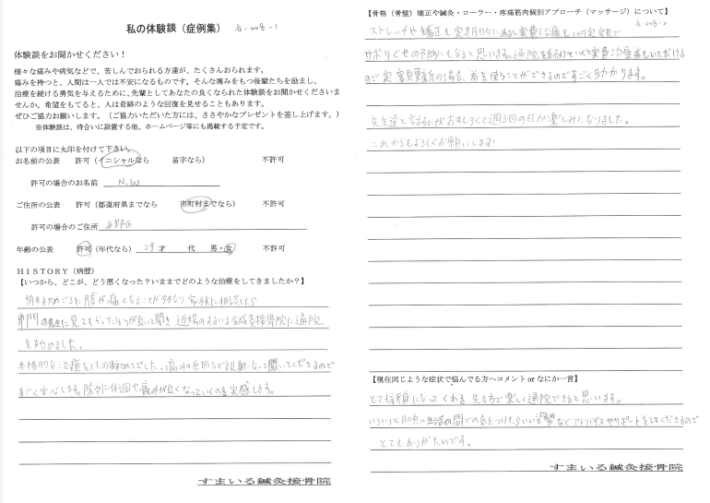 私の体験談（症例集）
体験談をお聞かせください！
様々な痛みや病気などで、苦しんでおられる方達が、たくさんおられます。
痛みを持つと、人間は一人では不安になるものです。そんな痛みをもつ後輩たちを励まし、
治療を続ける勇気を与えるために、先輩としてあなたの良くなられた体験談をお聞かせくださいま
せんか。希望をもてると、人は奇跡のような回復を見せることもあります。
ぜひご協力お願いします。（ご協力いただいた方には、ささやかなプレゼントを差し上げます。）
※体験談は、待合いに設置する他、ホームページ等にも掲載する予定です。
以下の項目に丸印を付けて下さい。
お名前の公表 許可（イニシャルなら 苗字なら） 不許可
許可の場合のお名前 N.W
ご住所の公表 許可（都道府県までなら 市町村までなら） 不許可
許可の場合のご住所 平野区
年齢の公表 許可（年代なら） 29才 代 男・女 不許可
HISTORY（病歴）
【いつから、どこが、どう悪くなった？いままでどのような治療をしてきましたか？】
膝が痛くなることが 家族に相談したら
専門の先生に見てもらったほうが良いと聞き 近場のすまいる鍼灸接骨院に通院
を始めました。
本格的な治療をしたの初めてでした。痛みの原因など親身になって聞いてくださるので
すごく安心します。 痛みが良くなっていくのを実感します。
すまいる鍼灸接骨院
【骨格（骨盤）矯正や鍼灸・ローラー・疼痛筋肉個別アプローチ（マッサージ）について】
ストレッチや矯正も定期的に
サボりぐせの予防にもなると思います。通院を続けていくと
すごく助かります。
先生達と話すのがおもしろくて週3回の日が楽しみになりました。
これからもよろしくお願いします！
【現在同じような症状で悩んでる方へコメント or なにか一言】
とても親身になってくれる先生方で楽しく通院できると思います。
いろいろと自分の生活の間での気をつけたらいい姿勢などアドバイスやサポートをしてくださるので
とてもありがたいです。
すまいる鍼灸接骨院